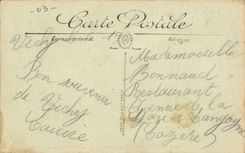 -03-
Carte Postale
Correspondance
Adresse
Vichy
Bon souvenir
de Vichy
Mademoiselle
Bonnaud
Restaurant
Avenue de la
Gare à Langogne
(Lozère)